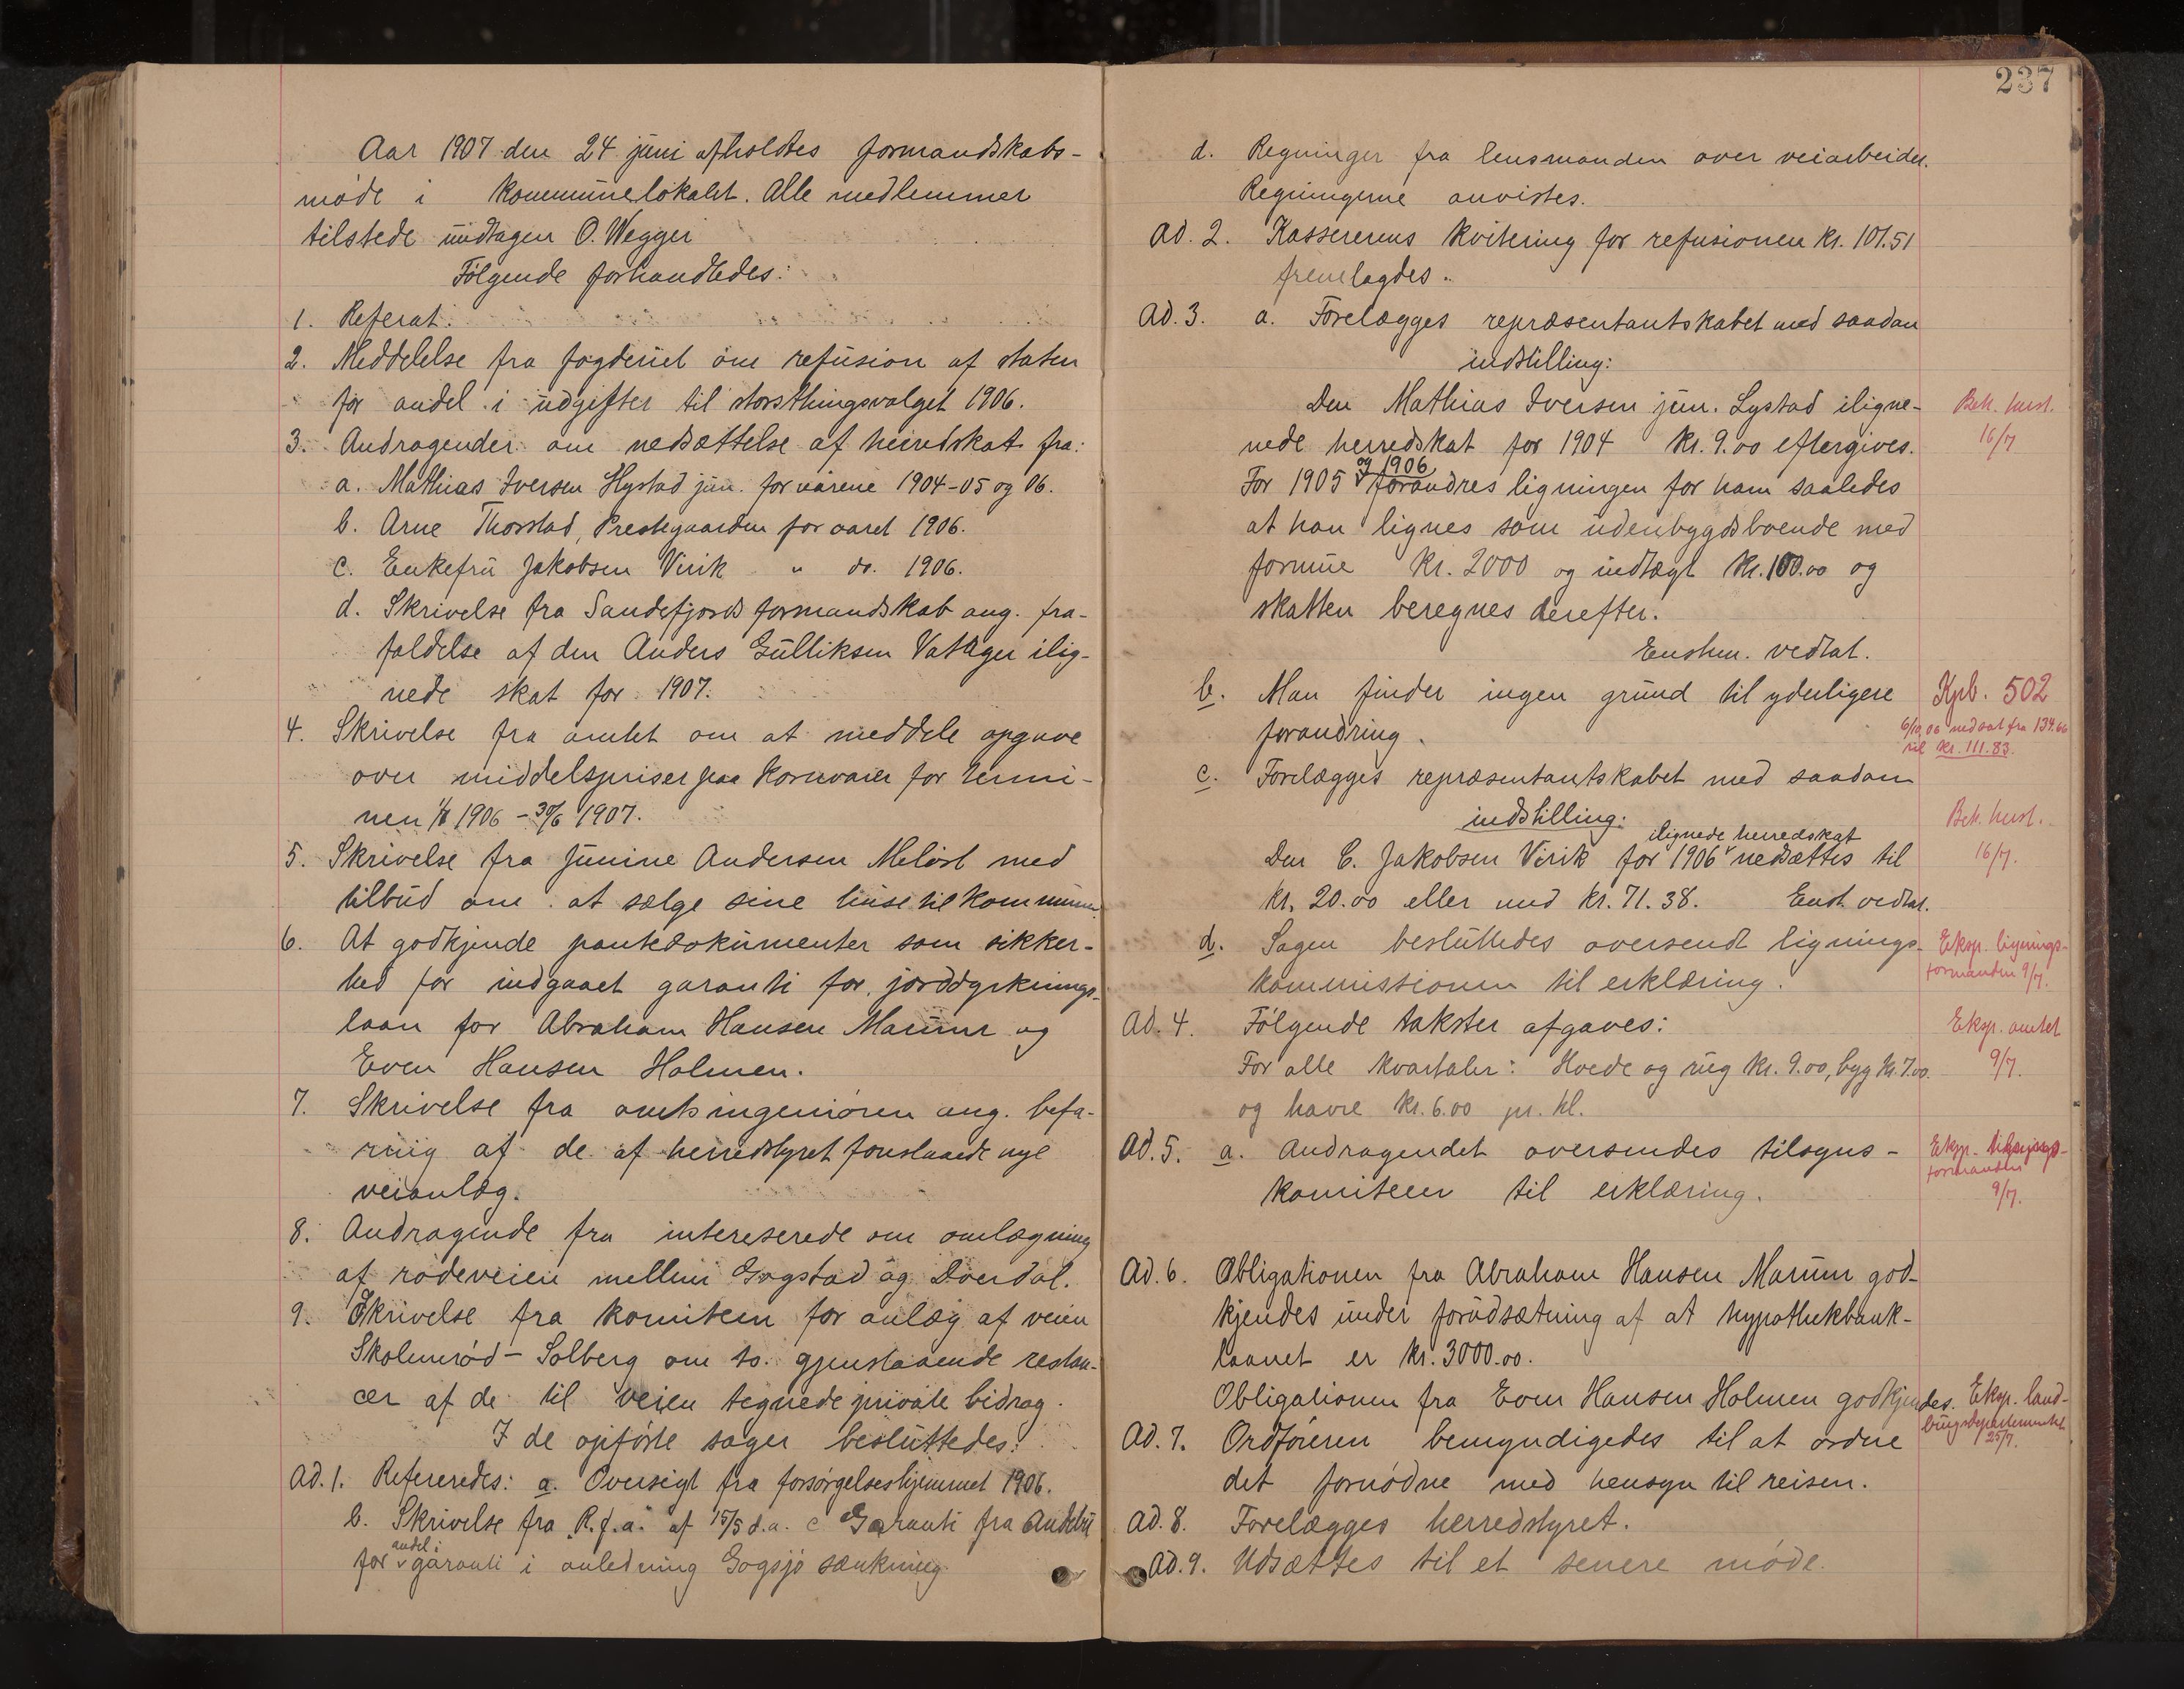 Aar 1907 den 24 juni afholdtes formandskabs-
møde i kommunelokalet. Alle medlemmer
tilstede undtagen O. Wegger
Følgende forhandledes:
1. Referat.
2. Meddelelse fra fogderiet om refusion af staten
for andel i udgifter til storsthingsvalget 1906.
3. Andragender om nedsættelse af herredskat fra:
a. Mathias Iversen Hystad jun. for aarene 1904-05 og 06.
b. Arne Thorstad, Prestegaarden for aaret 1906.
c. Enkefru Jakobsen Virik " do. 1906.
d. Skrivelse fra Sandefjords formandskab ang. fra-
faldelse af den Anders Gulliksen Vatager ilig-
nede skat for 1907.
4. Skrivelse fra amtet om at meddele opgave
over middelspriser paa kornvarer for termi-
nen 1906 - 30/6 1907.
5. Skrivelse fra Junine Andersen Meløst med
tilbud om at sælge sine huse til kommunen.
6. At godkjende pantedokumenter som sikker-
hed for indgaaet garanti for jorddyrknings-
laan for Abraham Hansen Marum og
Even Hansen Holmen.
7. Skrivelse fra amtsingeniøren ang. befa-
ring af de af herredstyret foreslaaede nye
veianlæg.
8. Andragende fra intereserede om omlægning
af rodeveien mellem Gogstad og Dverdal.
9. Skrivelse fra komiteen for anlæg af veien
Skolmerød - Solberg om to. gjenstaaende restan-
cer af de til veien tegnede private bidrag.
I de opførte sager besluttedes:
Ad. 1. Refereredes: a. Oversigt fra forsørgelseshjemmet 1906.
b. Skrivelse fra R.f.a. af 15/5 d.a. c Garanti fra Andebu
andel i
for garanti i anledning Gogsjø sænkning
237
d. Regninger fra lensmanden over veiarbeider.
Regningerne anvistes.
Ad. 2. Kassererens kvitering for refusionen kr. 101.51
fremlagdes.
Ad. 3. a. Forelægges repræsentantskabet med saadan
indstilling:
Den Mathias Iversen jun. Lystad iligne-
Bek. herst.
nede herredskat for 1904 kr. 9.00 eftergives.
16/7
og 1906
For 1905 forandres ligningen for ham saaledes
at han lignes som udenbygdsboende med
formue kr. 2000 og indtægt kr. 100.00 og
skatten beregnes derefter.
Enstem. vedtat.
b. Man finder ingen grund til yderligere
Kpb. 502
forandring.
6/10 06 nedsat fra 134.66
til kr. 111.83.
c. Forelægges repræsentantskabet med saadan
indstilling:
Bek. herst.
ilignede herredskat
Den C. Jakobsen Virik for 1906 nedsættes til
16/7.
kr. 20.00 eller med kr. 71.38. Enst. vedtat.
d. Sagen besluttedes oversendt lignings-
Eksp. lignings-
formanden 9/7.
kommissionen til erklæring.
Ad. 4. Følgende takster afgaves:
Eksp. amtet
For alle kvartaler: Hvede og rug kr. 9.00, byg kr. 7.00.
9/7.
og havre kr. 6.00 pr. hl.
Ad. 5. a. Andragendet oversendes tilsyns-
Eksp. tilsyns-
formanden
komiteen til erklæring.
9/7.
Ad. 6. Obligationen fra Abraham Hansen Marum god-
kjendes under forudsætning af at hypothekbank-
laanet er kr. 3000.00.
Obligationen fra Even Hansen Holmen godkjendes.
Eksp. land-
brugsdepartementet
25/7.
Ad. 7. Ordføreren bemyndigedes til at ordne
det fornødne med hensyn til reisen.
Ad. 8. Forelægges herredstyret.
Ad. 9. Udsættes til et senere møde.